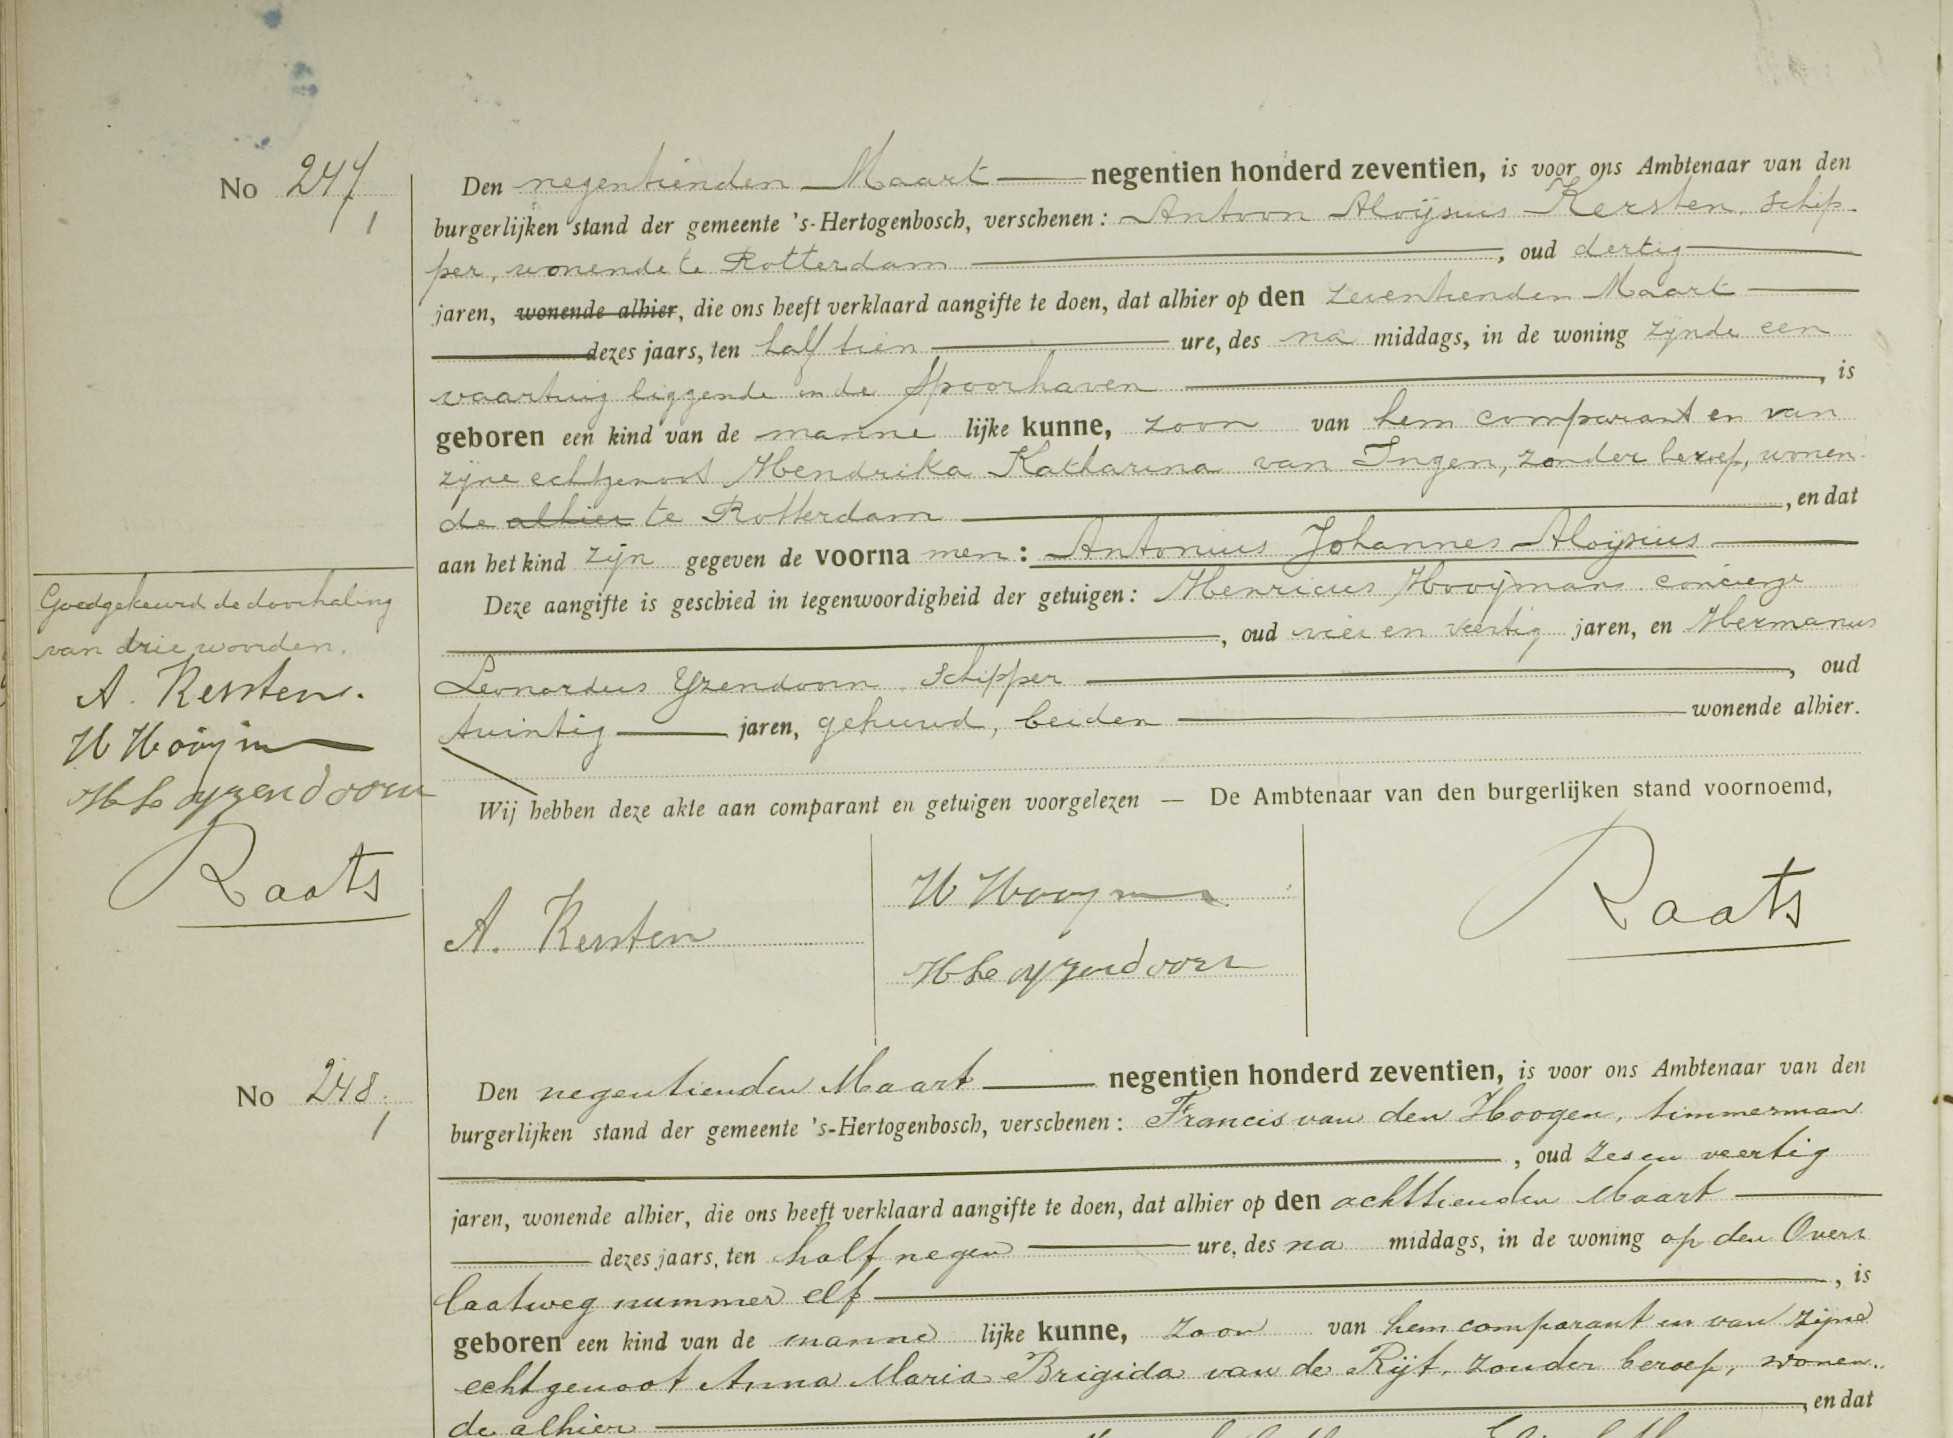 No 247, Den negentienden Maart negentien honderd zeventien, is voor ons Ambtenaar van den
burgerlijken stand der gemeente 's-Hertogenbosch, verschenen: Antoon Aloijsius Kersten, schip-
per, wonende te Rotterdam, oud dertig
jaren, wonende alhier, die ons heeft verklaard aangifte te doen, dat alhier op den zeventienden Maart
dezes jaars, ten half tien ure, des na middags, in de woning zijnde een
vaartuig liggende in de Spoorhaven, is
geboren een kind van de manne lijke kunne, zoon van hem comparant en van
zijne echtgenoot Hendrika Katharina van Ingen, zonder beroep, wonen-
de alhier te Rotterdam, en dat
aan het kind zijn gegeven de voorna men: Antonius Johannes Aloijsius
Deze aangifte is geschied in tegenwoordigheid der getuigen: Henricus Hooijmans, concierge
, oud vier en veertig jaren, en Hermanus
Leonardus Yzendoorn, schipper, oud
twintig jaren, gehuwd, beiden wonende alhier.
Goedgekeurd de doorhaling
van drie woorden.
A. Kersten.
H Hooijm
H L Yzendoorn
Raats
Wij hebben deze akte aan comparant en getuigen voorgelezen — De Ambtenaar van den burgerlijken stand voornoemd,
A. Kersten
H Hooijm
H L Yzendoorn
Raats
No 248, Den negentienden Maart negentien honderd zeventien, is voor ons Ambtenaar van den
burgerlijken stand der gemeente 's-Hertogenbosch, verschenen: Francis van den Hoogen, timmerman
, oud zes en veertig
jaren, wonende alhier, die ons heeft verklaard aangifte te doen, dat alhier op den achttienden Maart
dezes jaars, ten half negen ure, des na middags, in de woning op den Over-
laatweg nummer elf, is
geboren een kind van de manne lijke kunne, zoon van hem comparant en van zijne
echtgenoot Anna Maria Brigida van de Rijt, zonder beroep, wonen-
de alhier, en dat